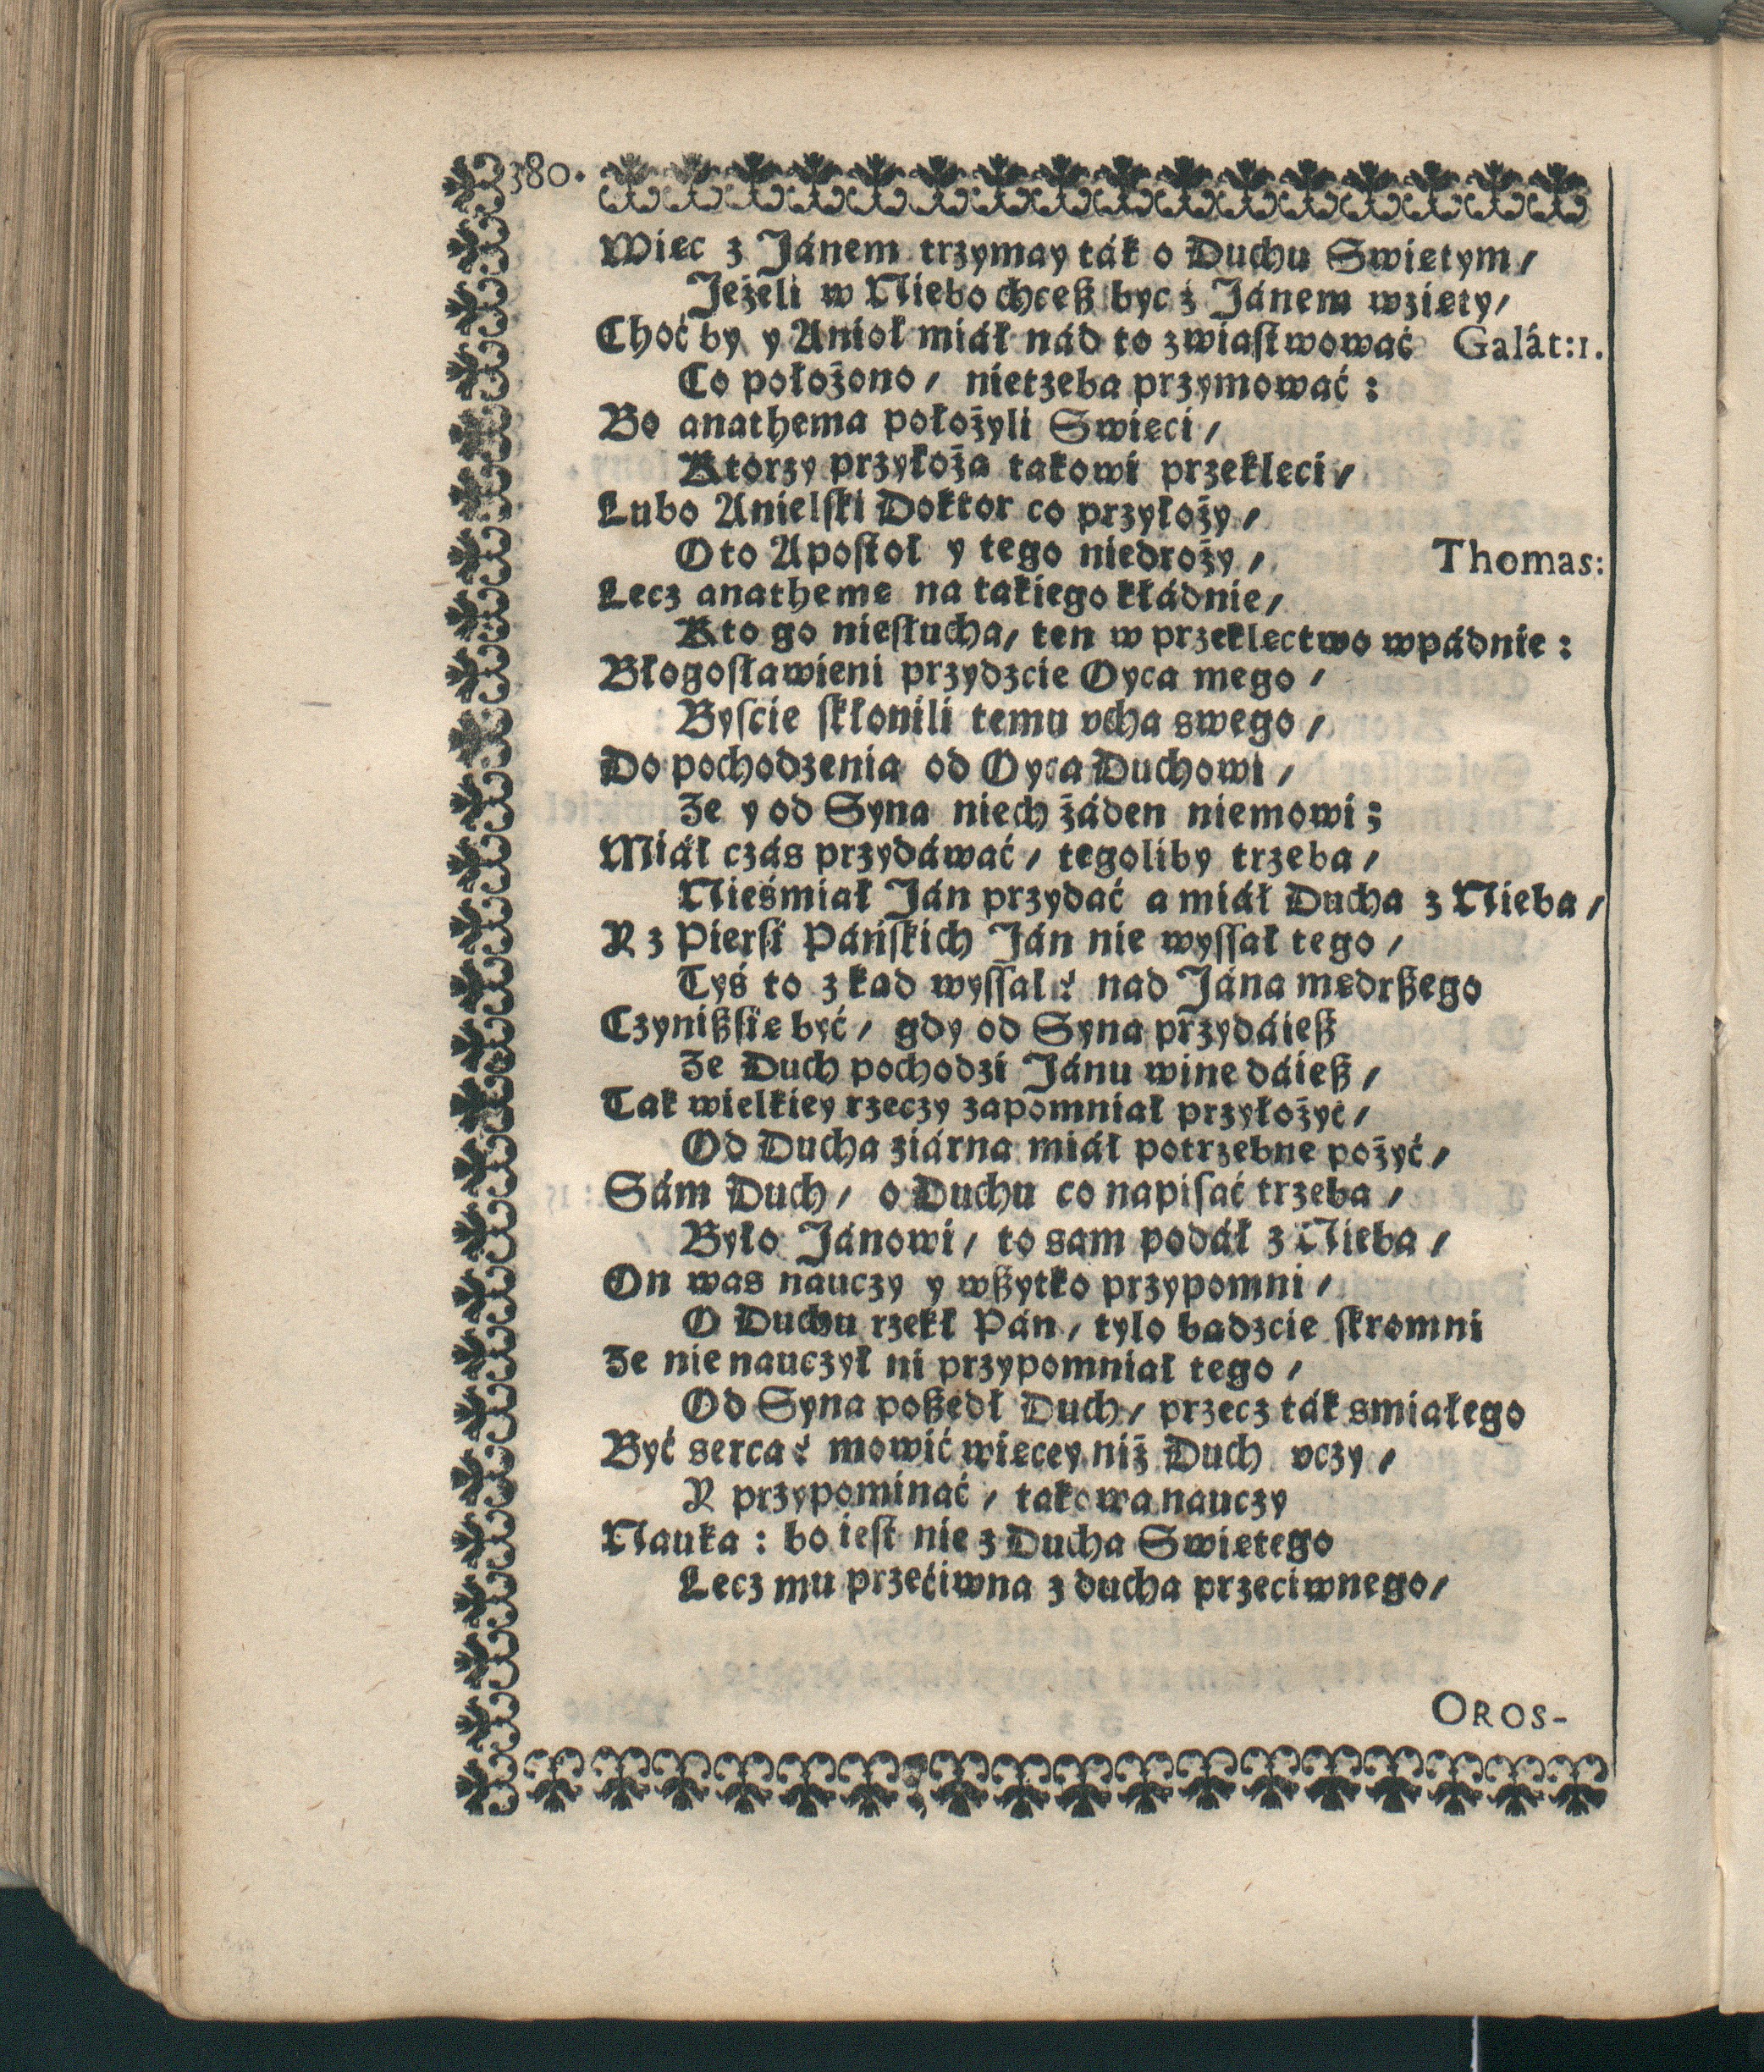 380.
Wiec z Jánem trzymay ták o Duchu Swietym/
Jeżeli w Niebo chceß byc ż Jánem wziety/
Choć by y Anioł miáł nád to zwiastwować Galát:1.
Co położono/ nietzeba przymować:
Bo anathema położyli Swieci/
Ktorzy przyłoża takowi przekleci/
Lubo Anielſki Doktor co przyłoży/
Oto Apoſtoł y tego niedroży/ Thomas:
Lecz anatheme na takiego kłádnie/
Kto go niesłucha/ ten w przeklectwo wpádnie:
Błogoſławieni przydzcie Oyca mego/
Byſcie ſkłonili temu vcha swego/
Do pochodzenia od Oyca Duchowi/
Że y od Syna niech żáden niemowi;
Miáł czás przydáwáć/ tegoliby trzeba/
Nieśmiał Ján przydáć a miáł Ducha z Nieba/
Y z Pierśi Páńſkich Ján nie wyſſał tego/
Tyś to z kad wyſſal? nad Jána medrßego
Czynißſie być/ gdy od Syna przydáieß
Że Duch pochodzi Jánu wine dáieß/
Tak wielkiey rzeczy zapomniał przyłożyć/
Od Ducha ziárna miáł potrzebne pożyć/
Sám Duch/ o Duchu co napiſać trzeba/
Było Jánowi/ to sam podáł z Nieba/
On was nauczy y wßytko przypomni/
O Duchu rzekł Pán/ tylo badzcie ſkromni
Że nie nauczył ni przypomniał tego/
Od Syna poßedł Duch/ przecz ták smiałego
Być serca? mowić wiecey niż Duch vczy/
Y przypominać/ takowa nauczy
Nauka: bo ieſt nie z Ducha Swietego
Lecz mu przećiwna z ducha przeciwnego/
OROS-